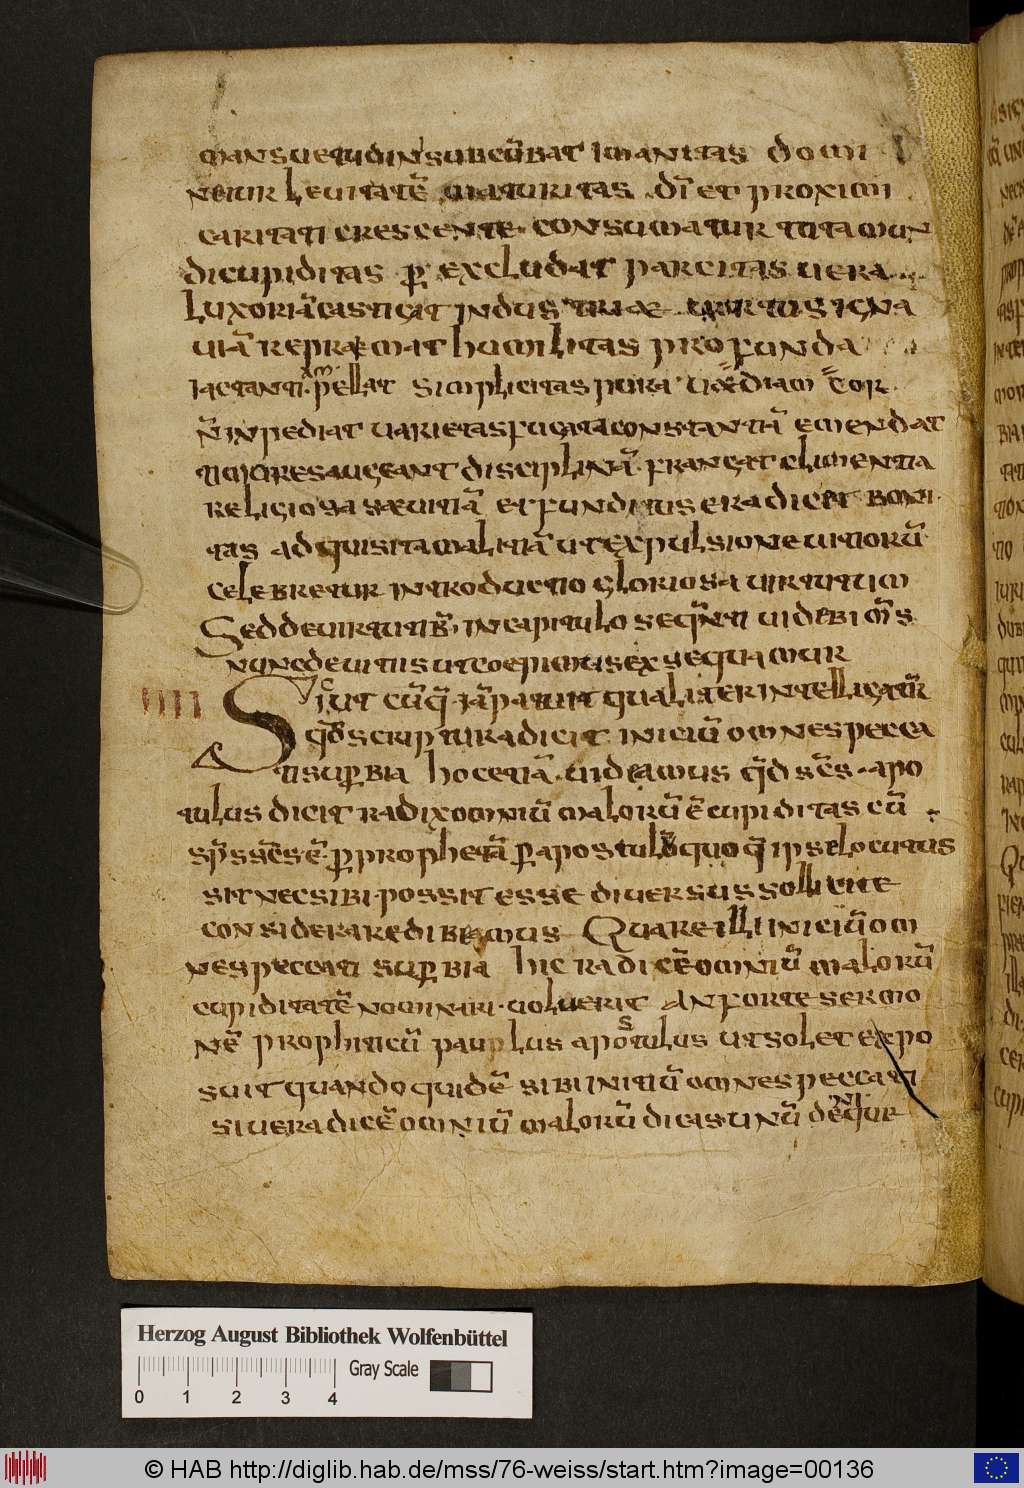 mansuetudini subcūbat Imanitas domi
netur leuitatē maturitas dī et proximi
caritati crescente consumatur tota mun
di cupiditas p excludat parcitas uera
luxoriā castigat industriae uirtus igna
uiā repraemat humilitas profunda
iactantiā pellat simplicitas pura uaediam cor
n̄ inpediat uarietas fugata constantiā emendat
timores augeant disciplinā frangat clementia
religiosa saeuitiā et funditus eradicet boni
tas adquisita malitiā ut expulsione uitiorū
celebretur introductio gloriosa uirtutum
Sed de uirtutib; in capitulo sequenti uidebim̄s
nunc de uitiis ut coepimus exsequamur
IIII Sicut cūq iā patuit qualiter intellegatūr
qđ scriptura dicit iniciū omnes pecca
ti supbia hoc etiā uideamus qđ scs apo
tulus dicit radix omniū malorū ē cupiditas cū
sps scs ē p prophetā p apostulū quoq ipse locutus
sit nec sibi possit esse diuersus sollicite
considerare dibemus Quare illi iniciū om
nes peccati supbia hic radicē omniū malorū
cupiditatē nominari uoluerit An forte sermo
nē prophiticū paulus apostulus ut solet expo
suit quando quidē sibi initiū omnes peccati
siue radicē omniū malorū dicas unū denique
Herzog August Bibliothek Wolfenbüttel
Gray Scale
0 1 2 3 4
© HAB http://diglib.hab.de/mss/76-weiss/start.htm?image=00136